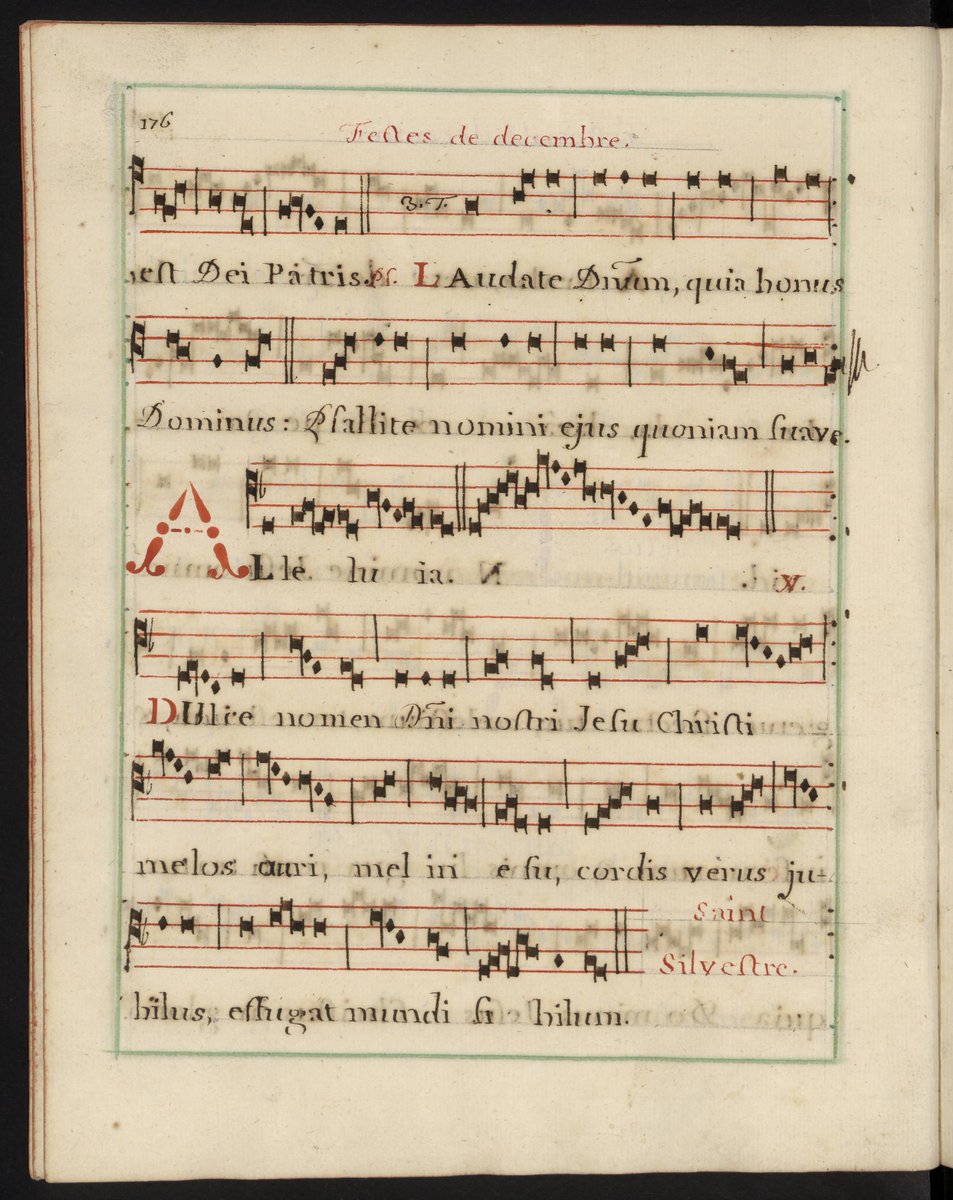 176
Festes de decembre.
est Dei Patris. Ps. LAudate Dn̄um, quia bonus
3. T.
Dominus: Psallite nomini ejus quoniam suave.
ALle lu ia. ℣.
DUlce nomen Dn̄i nostri Jesu Christi
melos auri, mel in e su, cordis verus ju-
Saint
Silvestre.
bilus, effugat mundi si bilum.